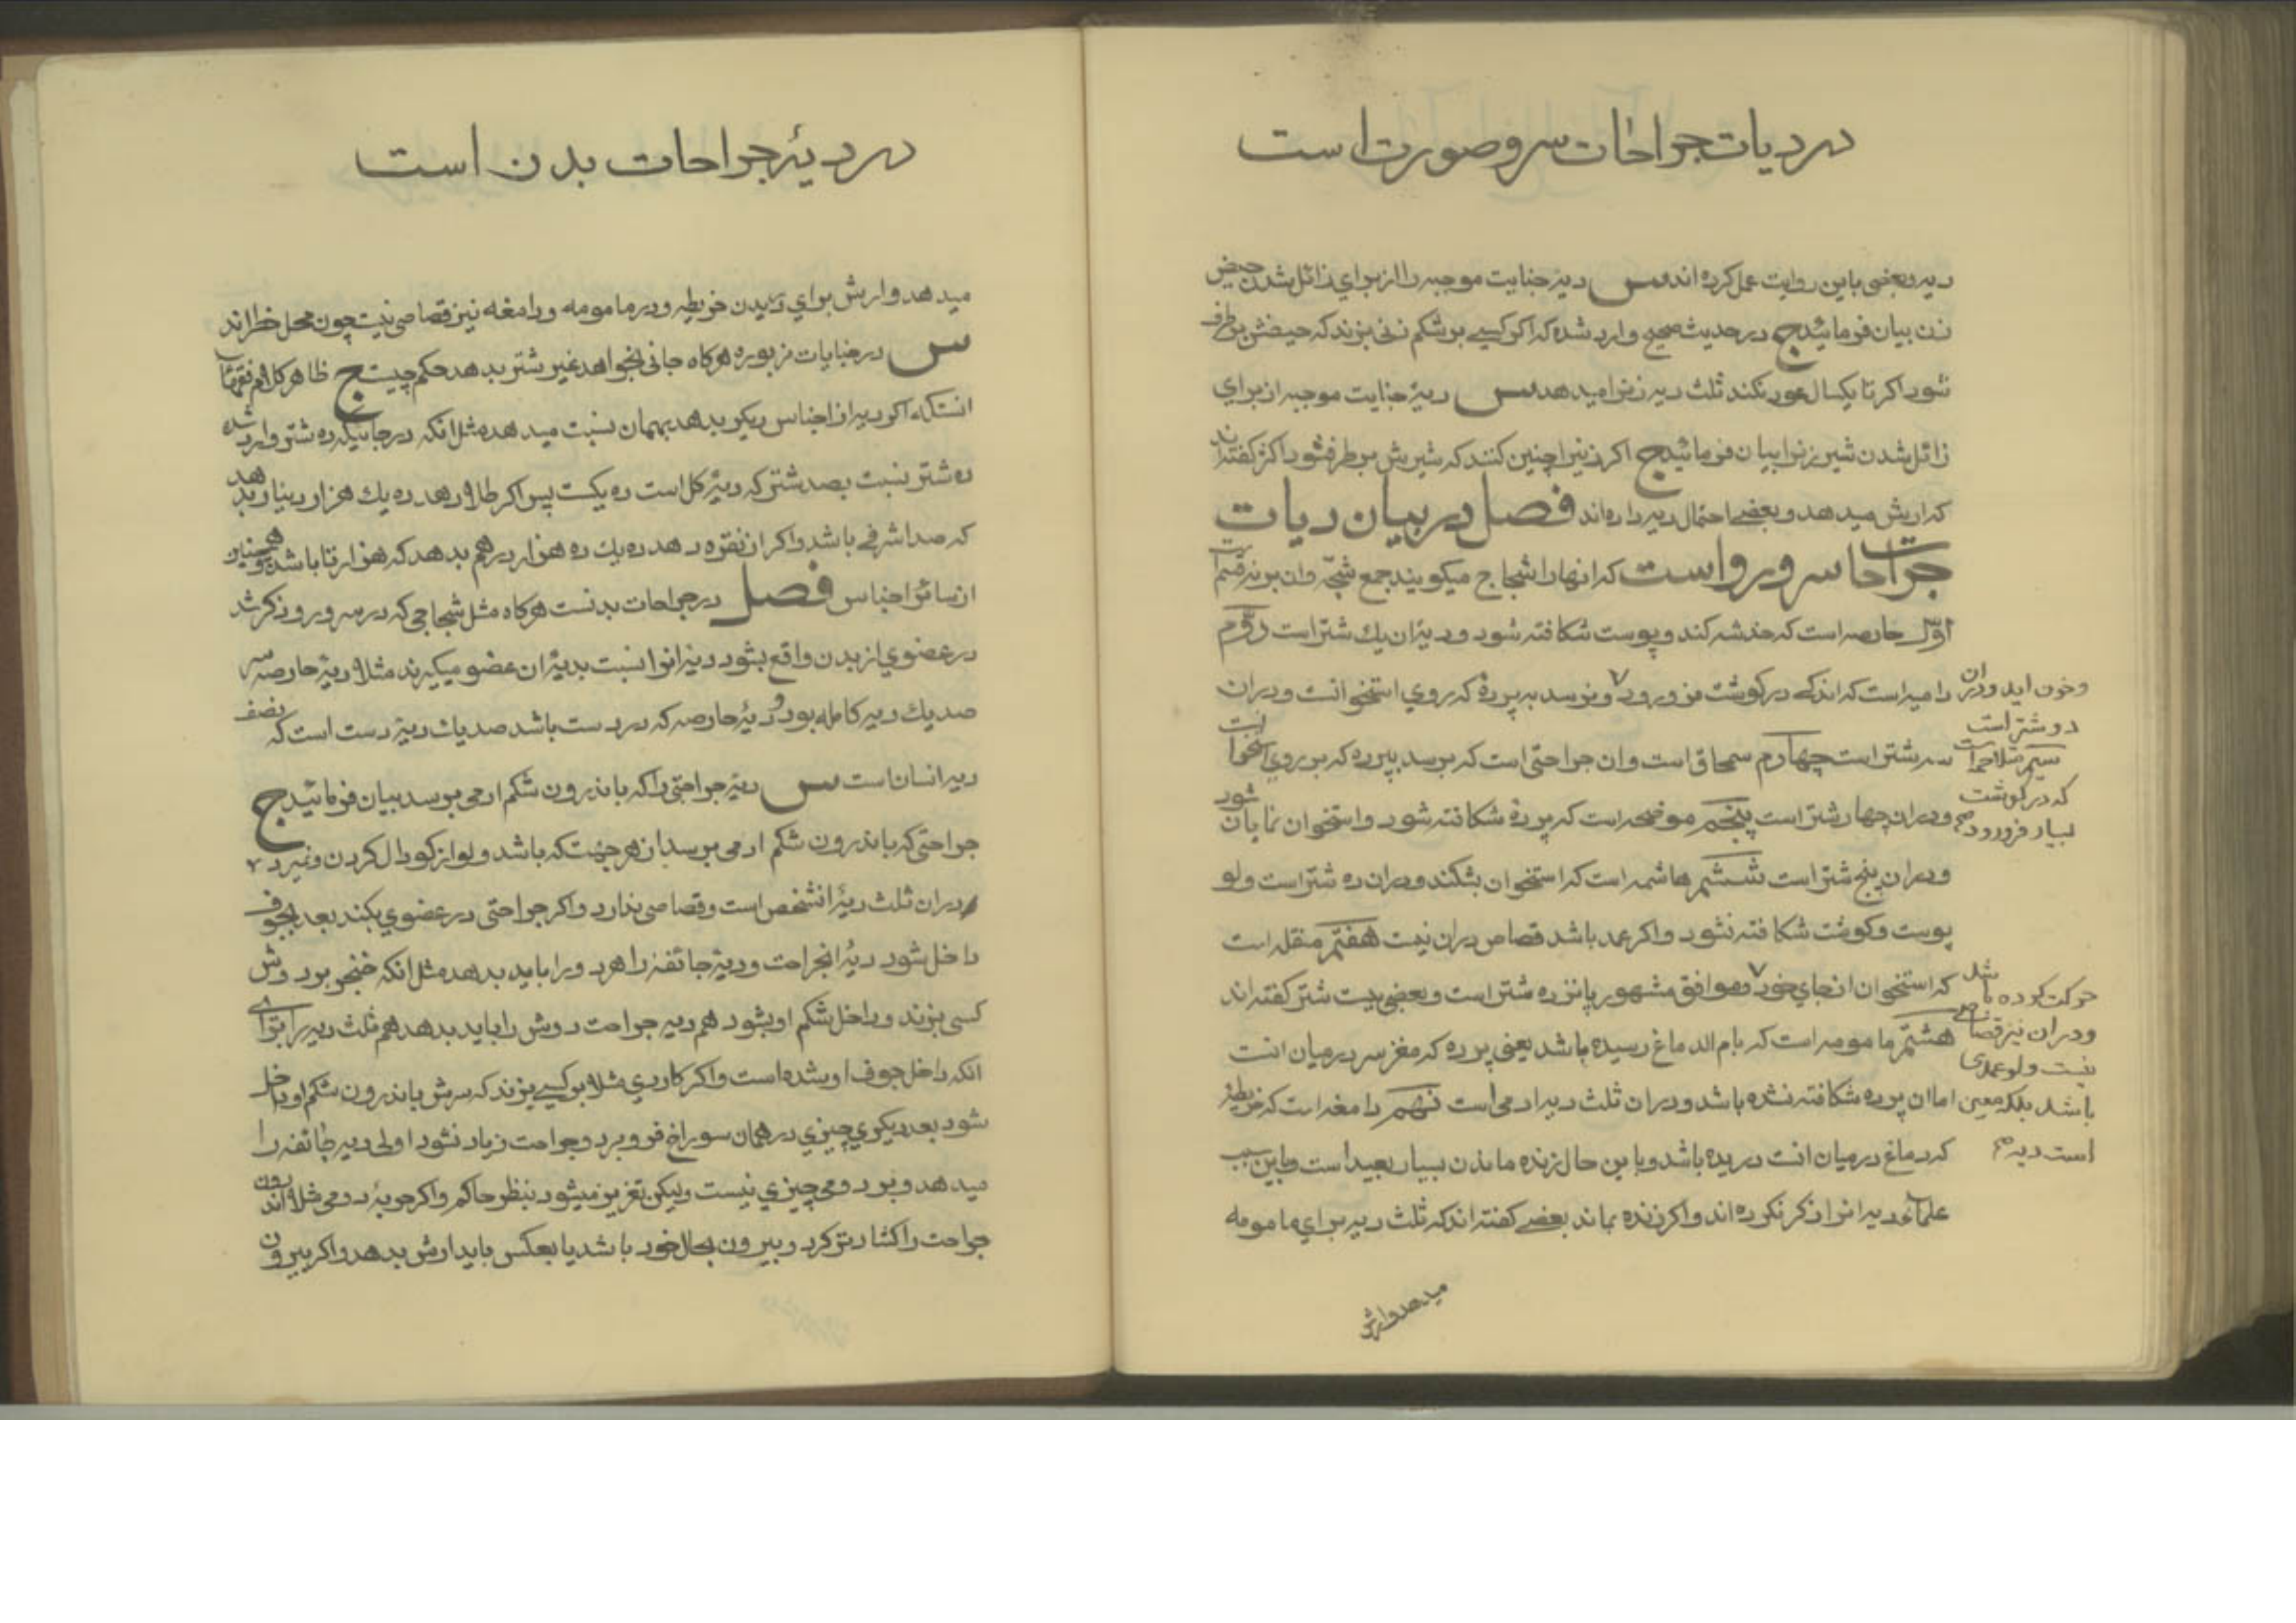 در دیات جراحات سر و صورت است
دیه و بعضی باین روایت عمل کرده اند س دیهٔ جنایت موجبه را از برای زائل شدن حیض
زن بیان فرمائید ج در حدیث صحیح وارد شده که اکر کسی بر شکم زنی بزند که حیضش بر طرف
شود اکر تا یکسال عود نکند ثلث دیه زنرا میدهد س دیهٔ جنایت موجبه از برای
زائل شدن شیر زنرا بیان فرمائید ج اکر زنیرا چنین کنند که شیرش بر طرف شود اکثر کفته اند
که ارش میدهد و بعضی احتمال دیه داده اند فصل در بیان دیات
جراحات سر و رو است که انها را شجاج میکویند جمع شجّه و ان بر نه قسم است
اوّل حارصه است که خدشه کند و پوست شکافته شود و دیهٔ ان یك شتر است دوّم
دامیه است که اندکی در کوشت فرو رود و نرسد به پردهٔ که روی استخوانست و در ان
وخون اید و در ان
دو شتر است
سیّم متلاحمه است
که در کوشت
بسیار فرو رود صح
سه شتر است چهارم سمحاق است و ان جراحتی است که برسد بپرده که بر روی استخوان است
و در ان چهار شتر است پنجم موضحه است که پردهٔ شکافته شود و استخوان نمایان شود
و در ان پنج شتر است ششم هاشمه است که استخوان بشکند و در ان ده شتر است و لو
پوست و کوشت شکافته نشود و اکر عمد باشد قصاص در ان نیست هفتم منقله است
که استخوان از جای خود و موافق مشهور پانزده شتر است و بعضی بیست شتر کفته اند
حرکت کرده باشد
و در ان نیز قصاصی
نیست و لو عمدی
باشد بلکه معین
است دیه صح
هشتم مامومه است که بام الدماغ رسیده باشد یعنی پرده که مغز سر در میان انست
اما ان پرده شکافته نشده باشد و در ان ثلث دیه ادمی است نهم دامغه است که خریطهٔ
که دماغ در میان انست دریده باشد و با این حال زنده ماندن بسیار بعید است و باین سبب
علماء دیه انرا ذکر نکرده اند و اکر زنده بماند بعضی کفته اند که ثلث دیه برای مامومه
میدهد و ارش
در دیهٔ جراحات بدن است
میدهد و ارش برای دریدن خریطه و در مامومه و دامغه نیز قصاصی نیست چون محل خطر اند
س در جنایات مزبوره هرکاه جانی بخواهد غیر شتر بدهد حکم چیست ج ظاهر کلام فقهاء
انستکه اکر دیه از اجناس دیکر بدهد بهمان نسبت میدهد مثل انکه در جائیکه ده شتر وارد شده
ده شتر نسبت بصد شتر که دیهٔ کل است ده یکست پس اکر طلا دهد ده یك هزار دینار بدهد
که صد اشرفی باشد و اکر از نقره دهد ده یك ده هزار درهم بدهد که هزار تا باشد و همچنین
از سائر اجناس فصل در جراحات بدنست هرکاه مثل شجاجی که در سر و رو ذکر شد
در عضوی از بدن واقع بشود دیهٔ انرا نسبت بدیهٔ ان عضو میکیرند مثلا دیهٔ حارصه سر
صد یك دیه کامله بود و دیهٔ حارصه که در دست باشد صد یك دیهٔ دست است که نصف
دیه انسان است س دیهٔ جراحتی را که باندرون شکم ادمی برسد بیان فرمائید ج
جراحتی که باندرون شکم ادمی برسد از هر جهت که باشد و لو از کودال کردن و نمیرد
در ان ثلث دیهٔ انشخص است و قصاصی ندارد و اکر جراحتی در عضوی بکند بعد بجوف
داخل شود دیهٔ انجراحت و دیهٔ جائفه را هر دو را باید بدهد مثل انکه خنجر بر دوش
کسی بزند و داخل شکم او بشود هم دیه جراحت دوش را باید بدهد هم ثلث دیه را برای
انکه داخل جوف او شده است و اکر کاردی مثلا بر کسی بزند که سرش باندرون شکم او داخل
شود بعد دیکری چیزی در همان سوراخ فرو برد و جراحت زیاد نشود اولی دیه جائفه را
میدهد و بر دومی چیزی نیست ولیکن تعزیر میشود بنظر حاکم و اکر حربهٔ دومی مثلا اندرون
جراحت را کشادتر کرد و بیرون بحال خود باشد یا بعکس باید ارش بدهد و اکر بیرون